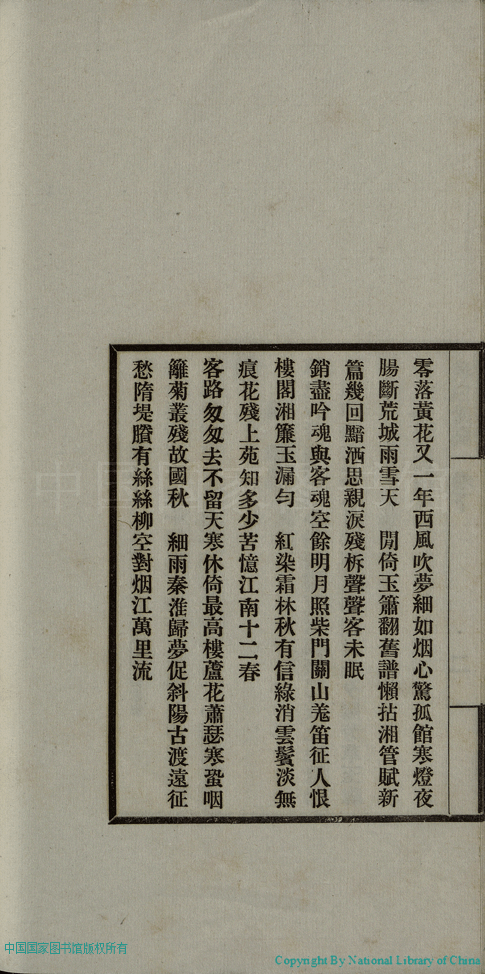 零落黃花又一年西風吹夢細如烟心驚孤館寒燈夜
腸斷荒城雨雪天　閒倚玉簫翻舊譜懶拈湘管賦新
篇幾回黯洒思親淚殘柝聲聲客未眠
銷盡吟魂與客魂空餘明月照柴門關山羗笛征人恨
樓閣湘簾玉漏勻　紅染霜林秋有信綠消雲鬢淡無
痕花殘上苑知多少苦憶江南十二春
客路匆匆去不留天寒休倚最高樓蘆花蕭瑟寒蛩咽
籬菊叢殘故國秋　細雨秦淮歸夢促斜陽古渡遠征
愁隋堤賸有絲絲柳空對烟江萬里流
中国国家图书馆版权所有
Copyright By National Library of China